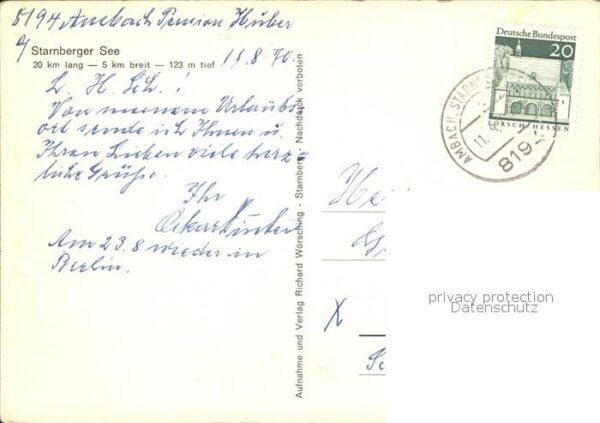 8194 Ambach Pension Huber
Starnberger See
20 km lang — 5 km breit — 123 m tief
11.8.70.
L. H. Sch. !
Von meinem Urlaubs-
ort sende ich Ihnen u.
Ihren Lieben viele herz-
liche Grüße.
Ihr
Am 23.8 wieder in
Berlin.
Aufnahme und Verlag Richard Wörsching - Starnberg - Nachdruck verboten
Deutsche Bundespost
20
LORSCH/HESSEN
AMBACH, STARNB
11.8
8194
He
X
privacy protection
Datenschutz